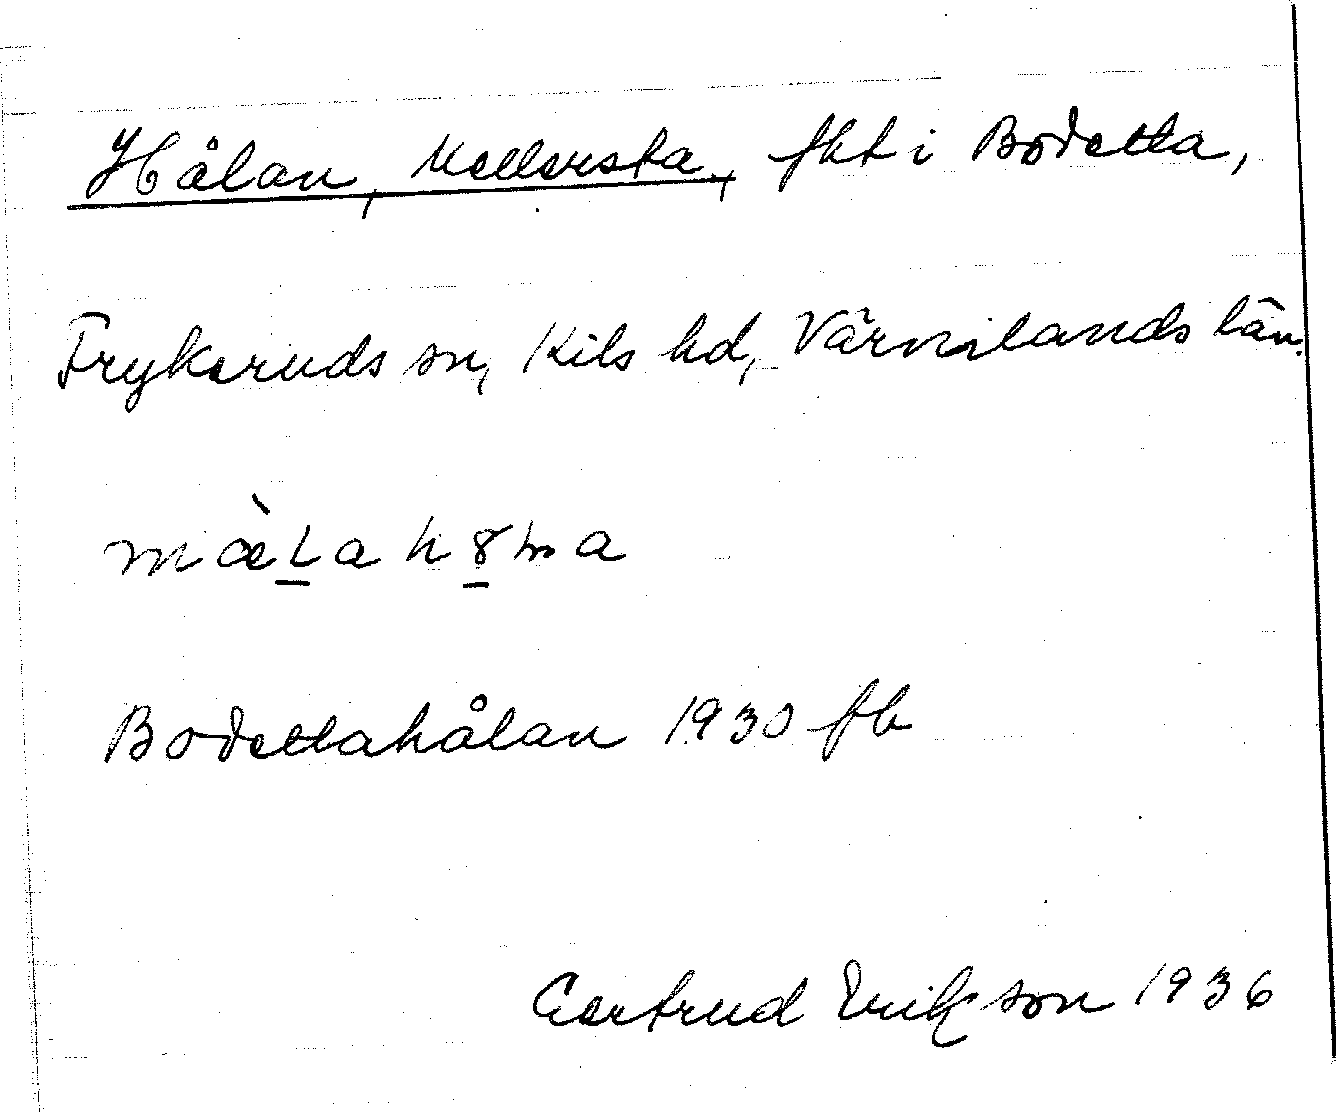 Hålan, Mellersta, fht i Bodetta,
Frykeruds sn, Kils hd, Värmlands län.
Bodettahålan 1930 fb
Gertrud Erikson 1936